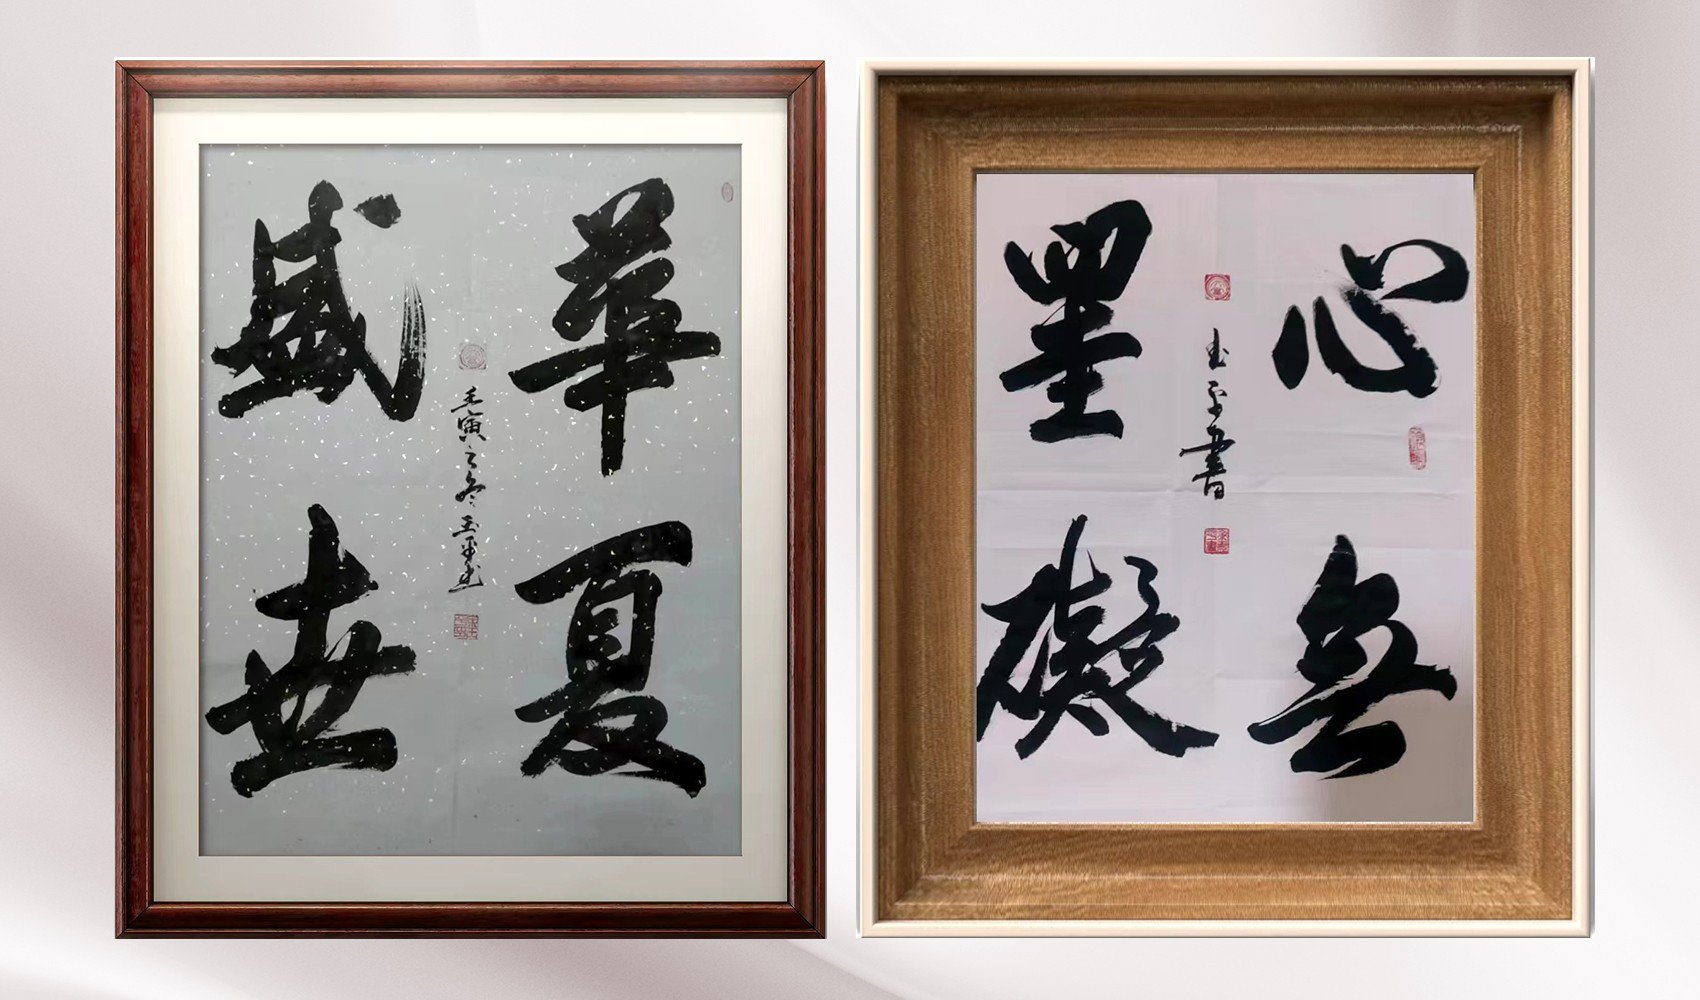 華夏
盛世
壬寅之冬玉平書
心無
罣礙
玉平書